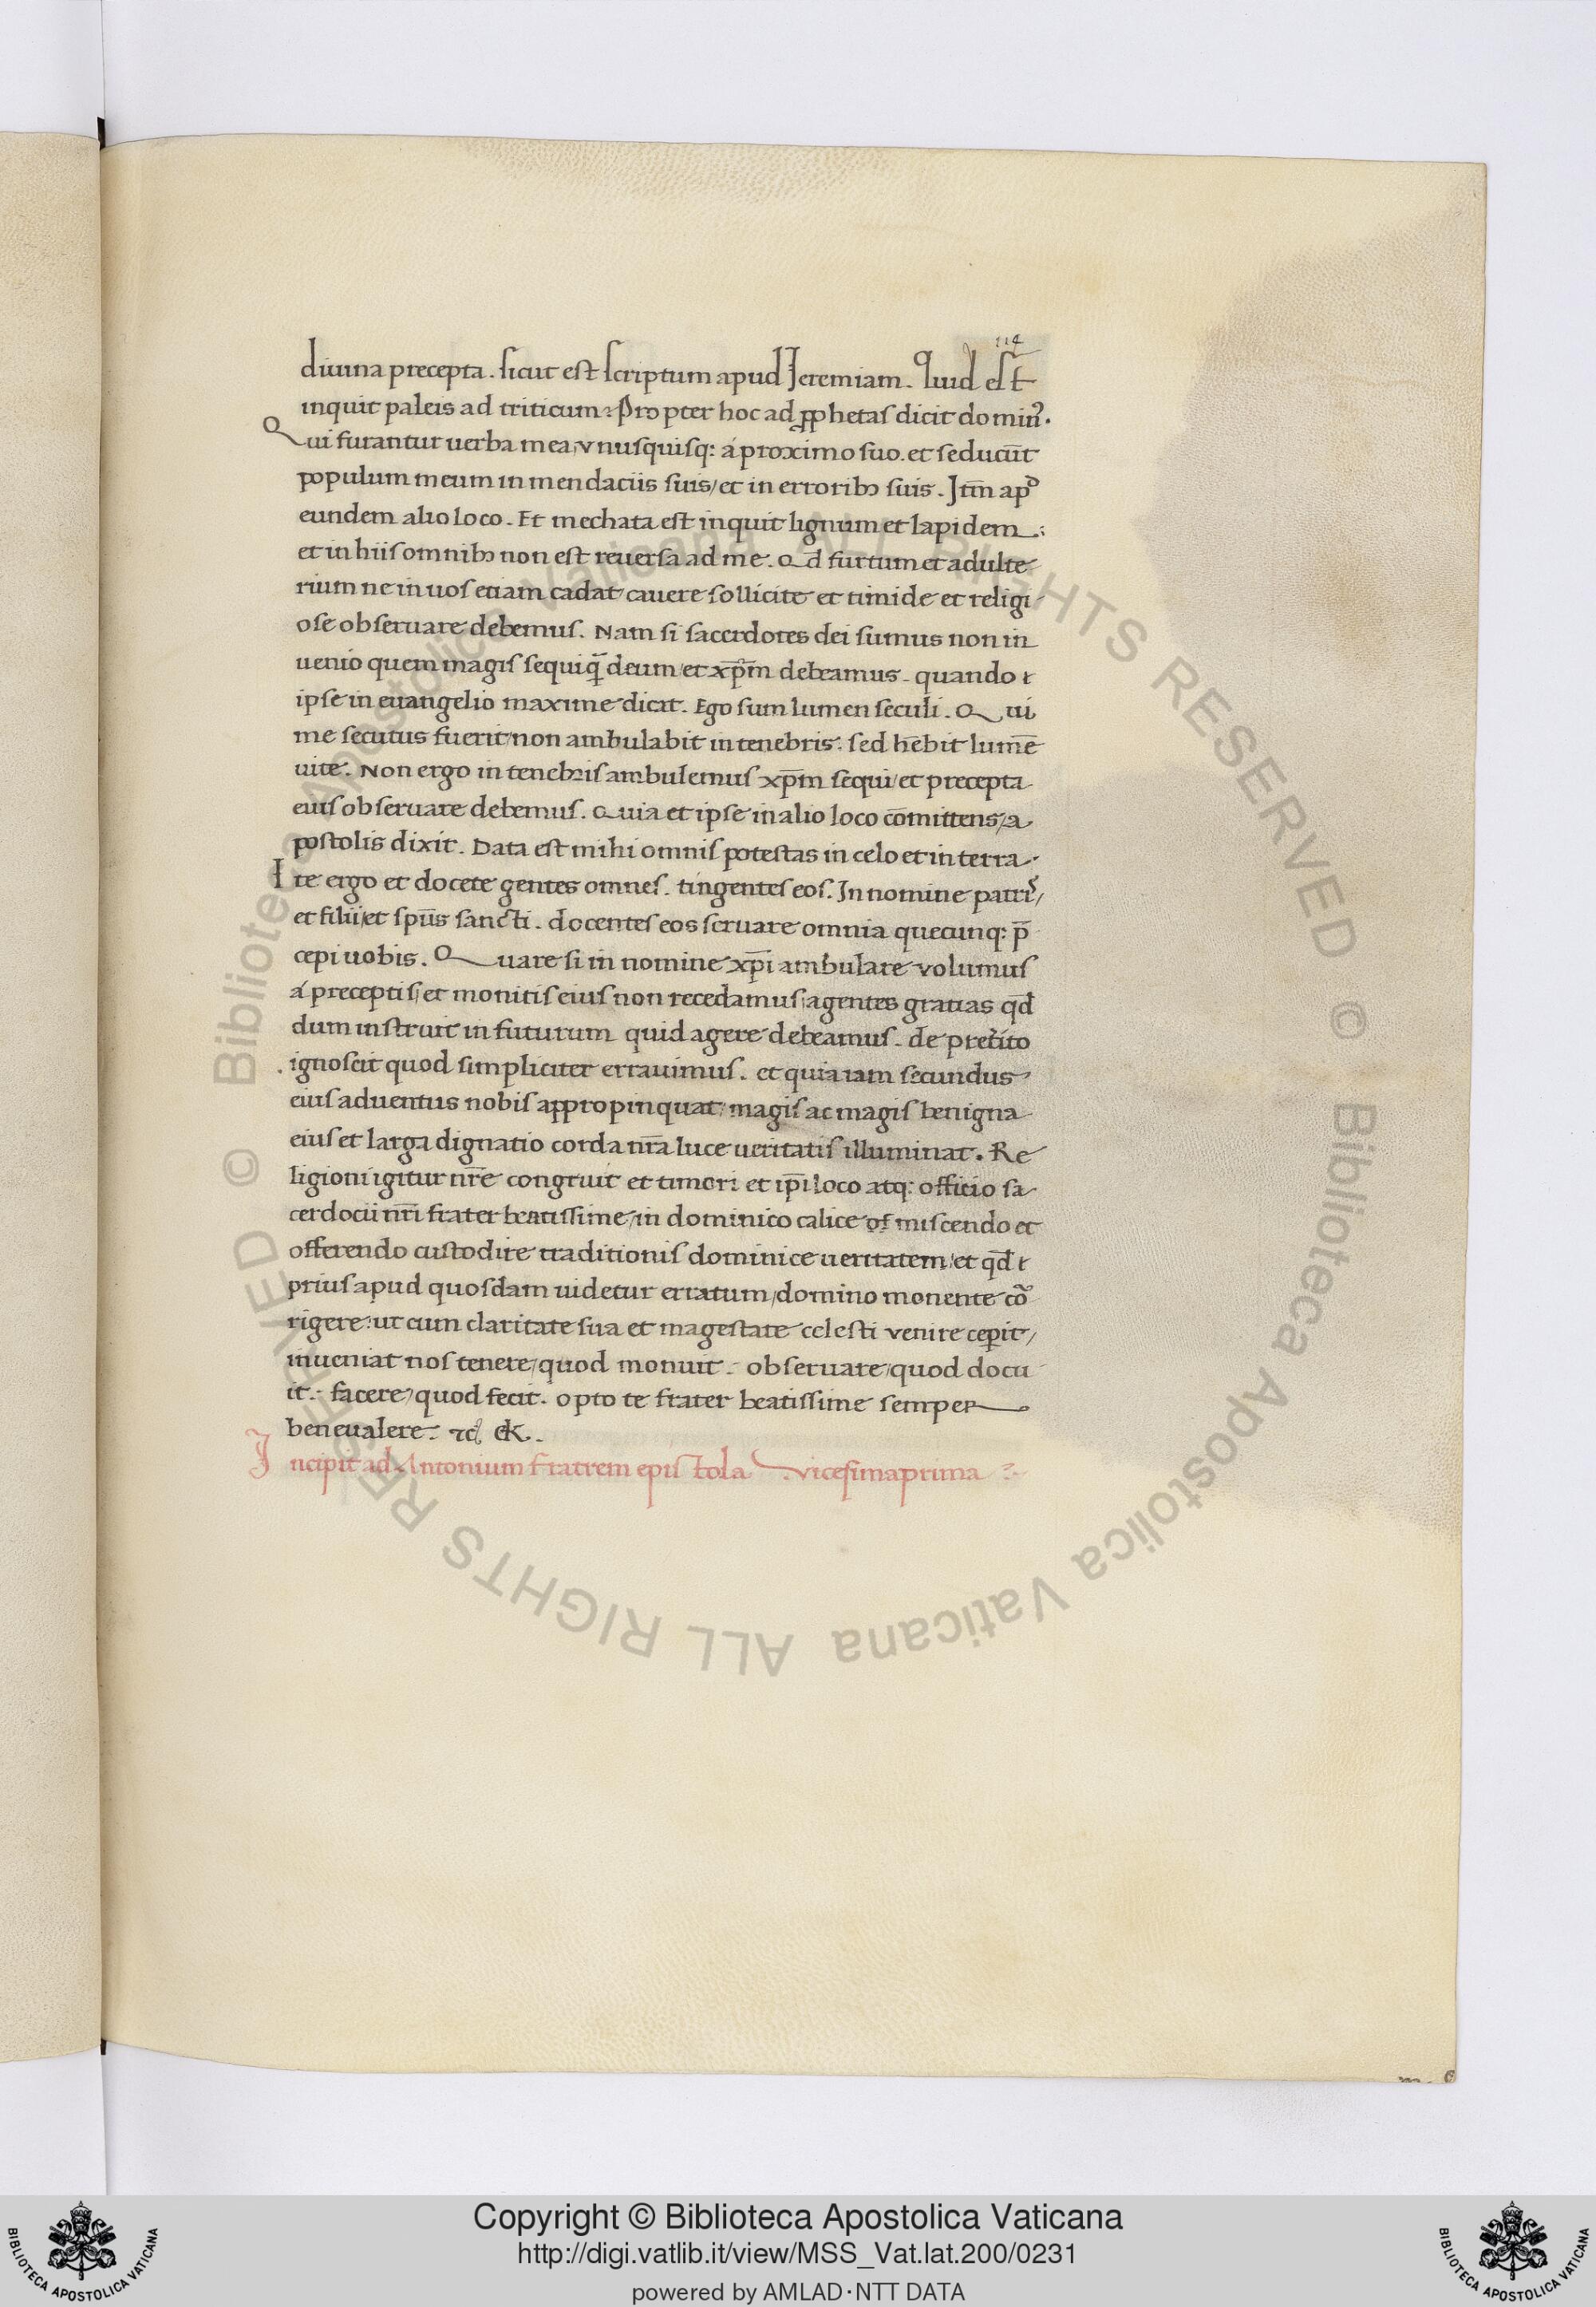 114
diuina precepta. sicut est scriptum apud Jeremiam. Quid est
inquit paleis ad triticum? Propter hoc ad prophetas dicit domin̄⁹.
Qui furantur uerba mea, vnusquisq: á proximo suo. et seducūt
populum meum in mendaciis suis, et in erroribꝫ suis. Itm̄ ap
eundem alio loco. Et mechata est inquit lignum et lapidem:
et in hiis omnibꝫ non est reuersa ad me. Qd̄ furtum et adulte
rium ne in uos etiam cadat cauere sollicite et timide et religi
ose obseruare debemus. Nam si sacerdotes dei sumus non in
uenio quem magis sequi q̄ deum, et xp̄m debeamus. quando
ipse in euangelio maxime dicat. Ego sum lumen seculi. Qui
me secutus fuerit, non ambulabit in tenebris: sed hēbit lumē
uite. Non ergo in tenebris ambulemus xp̄m sequi, et precepta
eius obseruare debemus. Quia et ipse in alio loco cōmittens, a
postolis dixit. Data est mihi omnis potestas in celo et in terra.
Ite ergo et docete gentes omnes. tingentes eos. In nomine patris,
et filii, et spūs sancti. docentes eos seruare omnia quecunq: p̄
cepi uobis. Quare si in nomine xp̄i ambulare volumus
á preceptis, et monitis eius non recedamus, agentes gratias qd̄
dum instruit in futurum quid agere debeamus. de pret̾ito
ignoscit quod simpliciter errauimus. et quia iam secundus
eius aduentus nobis appropinquat, magis ac magis benigna
eius et larga dignatio corda nr̄a luce ueritatis illuminat. Re
ligioni igitur nr̄e congruit et timori et ip̄i loco atq: officio sa
cerdocii nr̄i frater beatissime, in dominico calice of miscendo et
offerendo custodire traditionis dominice ueritatem, et qd̄
prius apud quosdam uidetur erratum, domino monente co
rigere: ut cum claritate sua et magestate celesti venire ceperit,
inueniat nos tenere, quod monuit. obseruare, quod docu
it. facere, quod fecit. opto te frater beatissime semper
bene ualere.
Incipit ad Antonium fratrem epistola vicesimaprima
Copyright © Biblioteca Apostolica Vaticana
http://digi.vatlib.it/view/MSS_Vat.lat.200/0231
powered by AMLAD·NTT DATA
BIBLIOTECA APOSTOLICA VATICANA
BIBLIOTECA APOSTOLICA VATICANA
© Biblioteca Apostolica Vaticana ALL RIGHTS RESERVED © Biblioteca Apostolica Vaticana ALL RIGHTS RESERVED